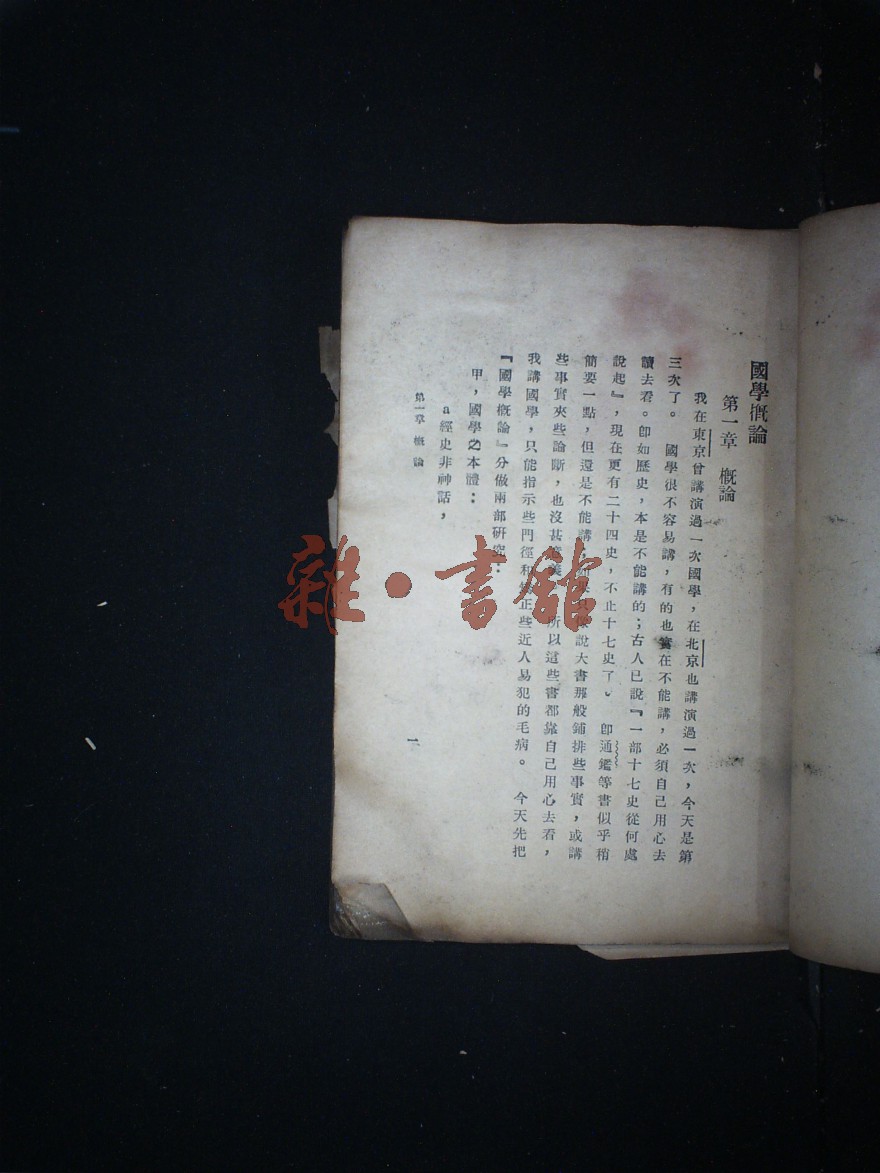 國學概論
第一章 概論
我在東京曾講演過一次國學，在北京也講演過一次，今天是第
三次了。 國學很不容易講，有的也實在不能講，必須自己用心去
讀去看。即如歷史，本是不能講的；古人已說『一部十七史從何處
說起』，現在更有二十四史，不止十七史了。 即通鑑等書似乎稍
簡要一點，但還是不能講；如果只像說大書那般鋪排些事實，或講
些事實夾些論斷，也沒甚意義。所以這些書都靠自己用心去看，
我講國學，只能指示些門徑和矯正些近人易犯的毛病。 今天先把
『國學概論』分做兩部研究：
甲，國學之本體：
a經史非神話，
第一章 概論
一
雜·書館